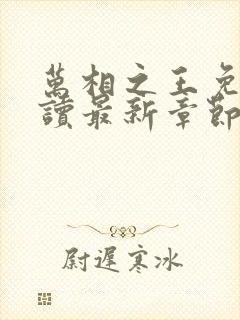 萬相之王免
讀最新章節
尉遲寒冰